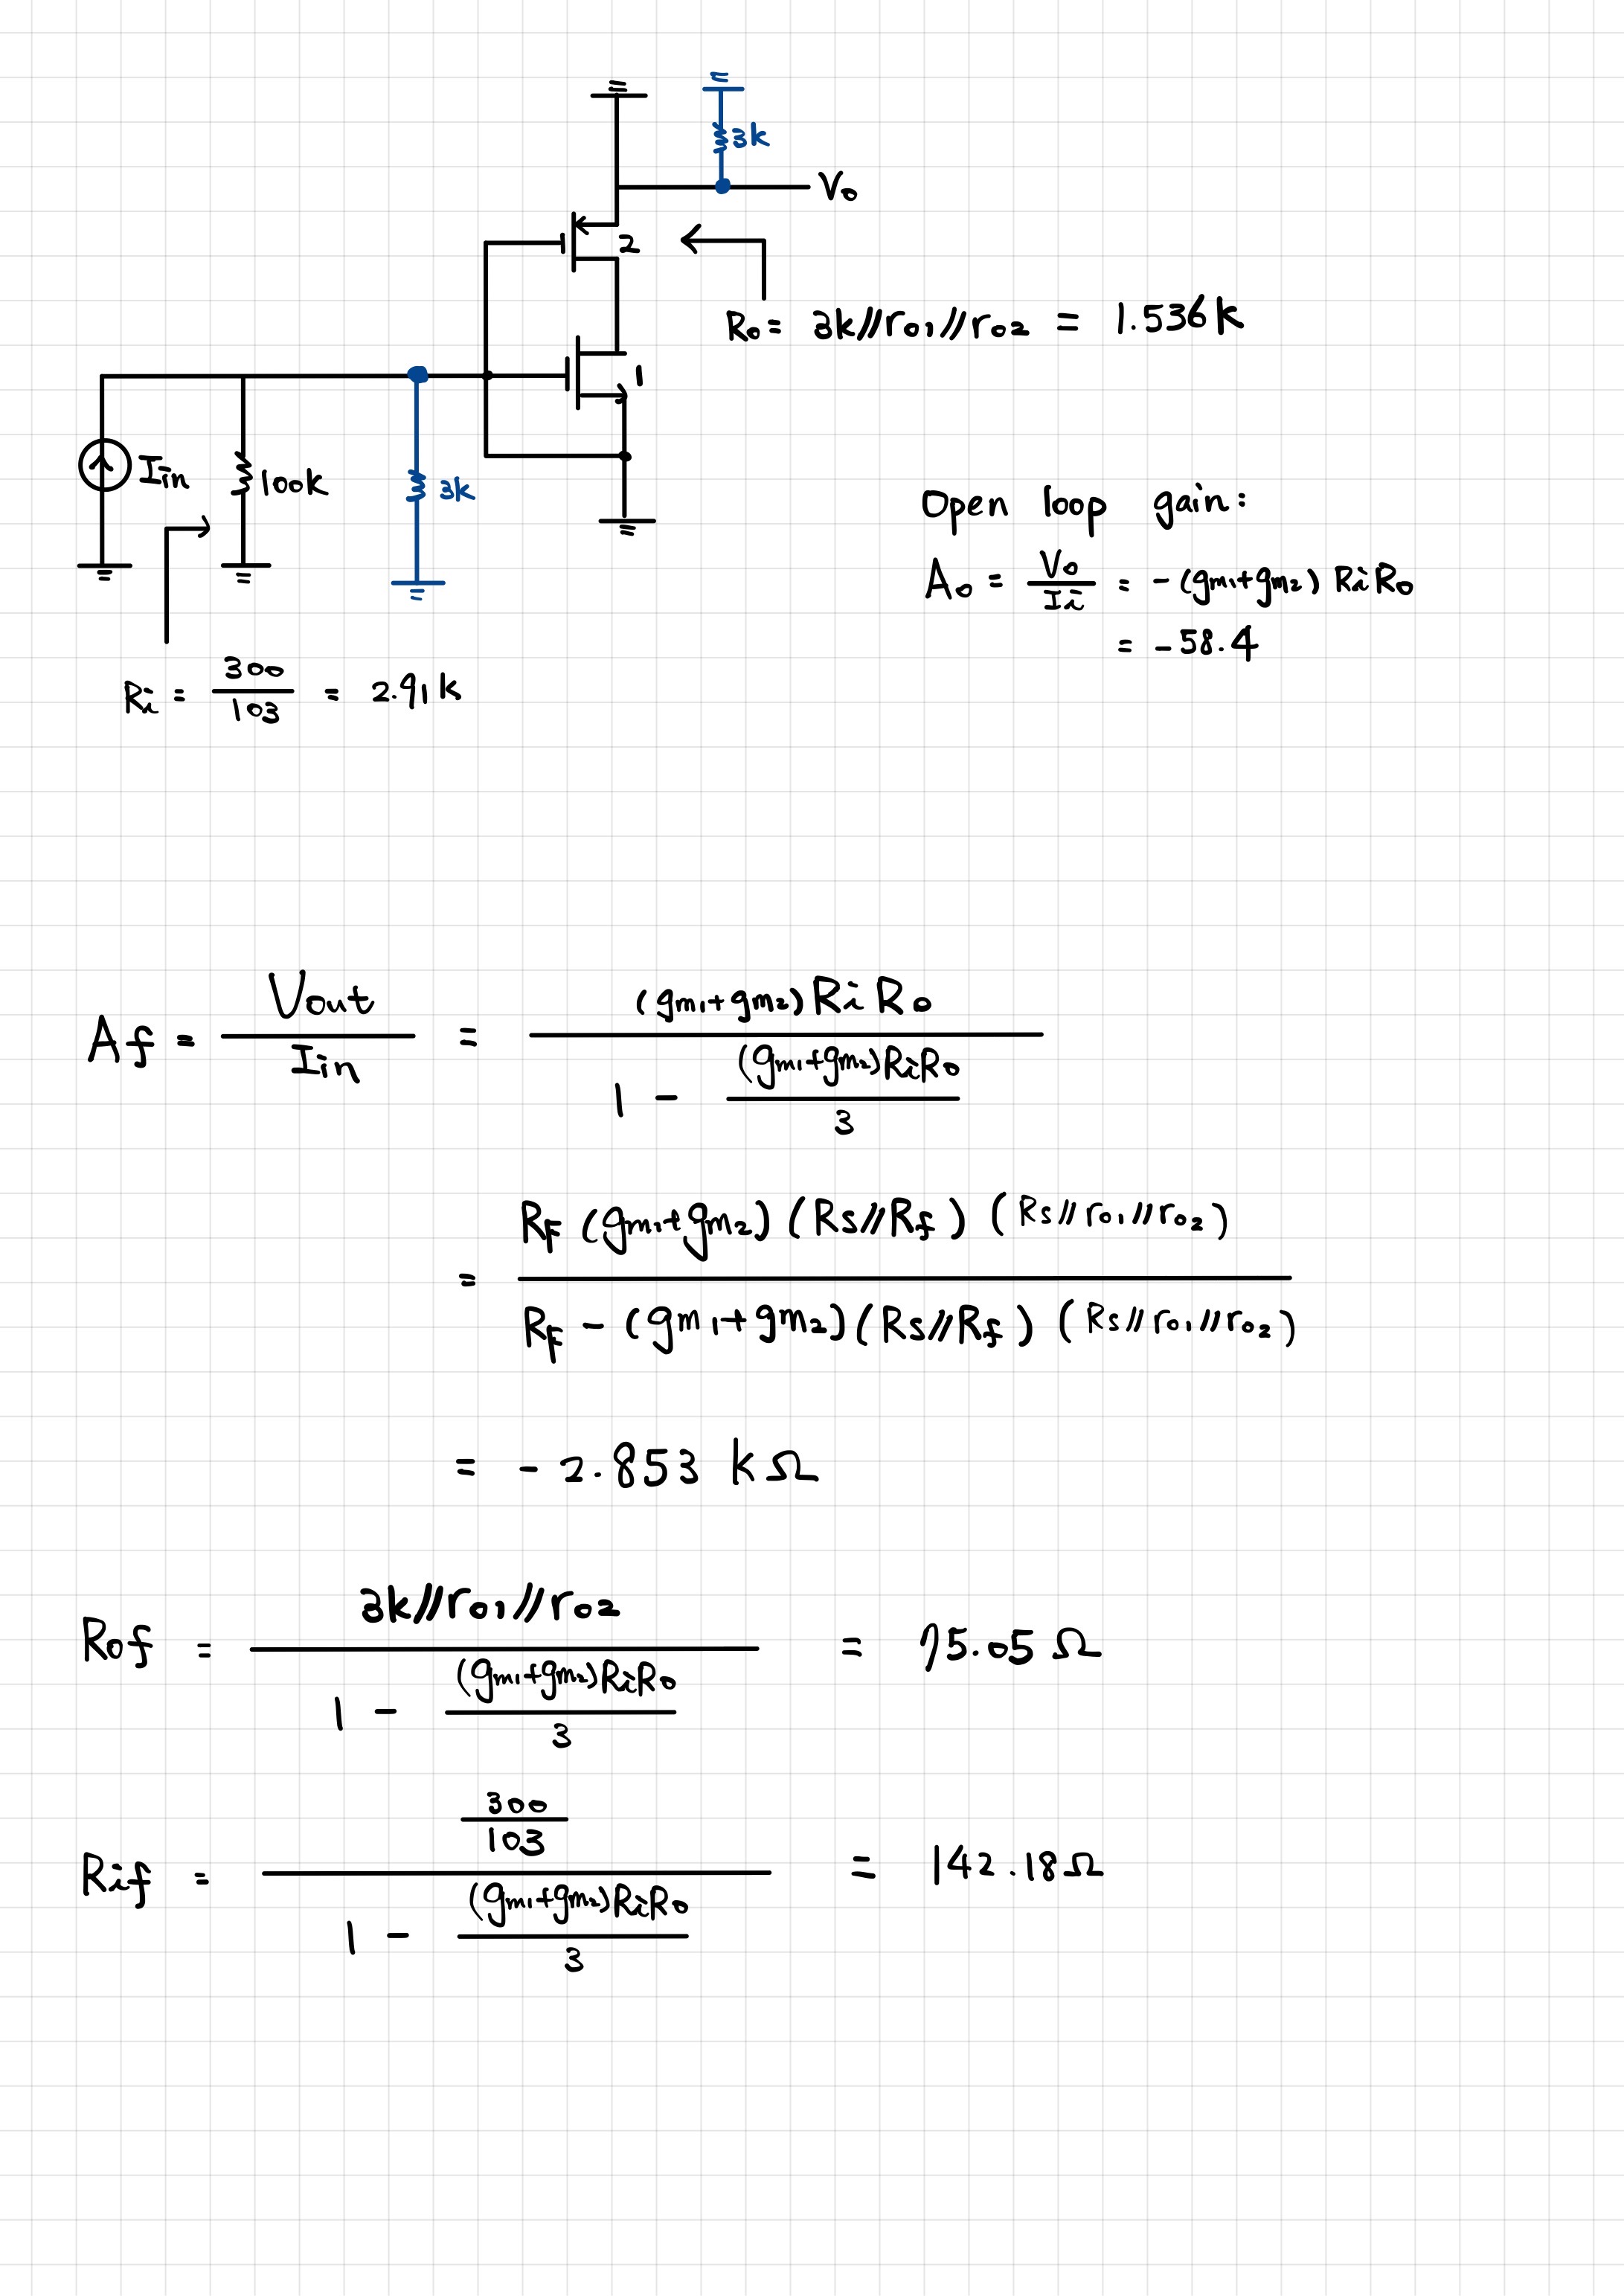 3k
Vo
2
Ro = 3k//ro1//ro2 = 1.536k
1
Iin
100k
3k
Open loop gain:
Ao = Vo/Ii = -(gm1+gm2) RiRo
= -58.4
Ri = 300/103 = 2.91k
Af = Vout/Iin = (gm1+gm2)RiRo / (1 - (gm1+gm2)RiRo/3)
= RF(gm1+gm2)(Rs//Rf)(Rs//ro1//ro2) / (RF-(gm1+gm2)(Rs//Rf)(Rs//ro1//ro2))
= -2.853 kΩ
Rof = 3k//ro1//ro2 / (1 - (gm1+gm2)RiRo/3) = 75.05Ω
Rif = (300/103) / (1 - (gm1+gm2)RiRo/3) = 142.18Ω